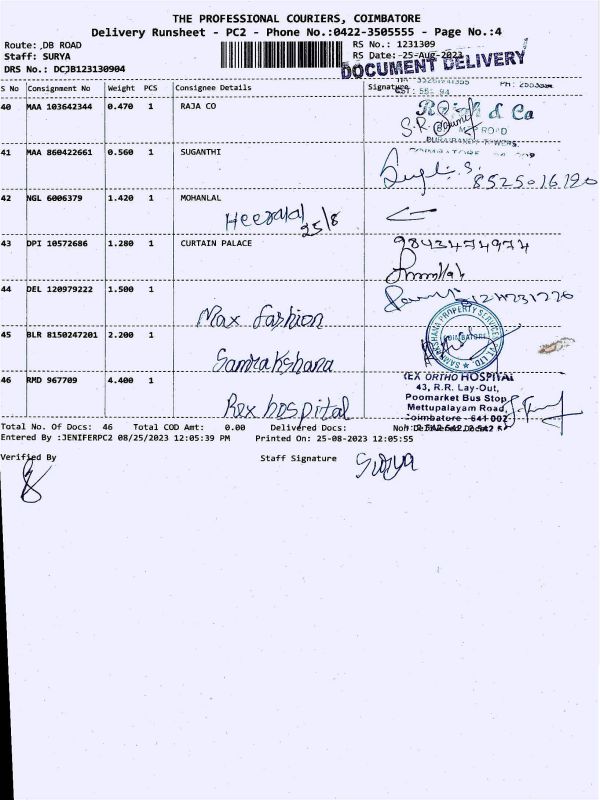 THE PROFESSIONAL COURIERS, COIMBATORE
Delivery Runsheet - PC2 - Phone No.:0422-3505555 - Page No.:4
Route: ,DB ROAD RS No.: 1231309
Staff: SURYA RS Date:-25-Aug-2023
DRS No.: DCJB123130904 DOCUMENT DELIVERY
S No Consignment No Weight PCS Consignee Details Signature
40 MAA 103642344 0.470 1 RAJA CO
& Co
S.R.
ROAD
41 MAA 860422661 0.560 1 SUGANTHI
8525016120
42 NGL 6006379 1.420 1 MOHANLAL
Heeralal 25/8
43 DPI 10572686 1.280 1 CURTAIN PALACE 9843474974
44 DEL 120979222 1.500 1
Max fashion
45 BLR 8150247201 2.200 1
SAMRAKSHANA PROPERTY SERVICES PVT LTD
COIMBATORE
Samrakshana
46 RMD 967709 4.400 1
REX ORTHO HOSPITAL
43, R.R. Lay-Out,
Poomarket Bus Stop
Mettupalayam Road,
Coimbatore - 641 002
Rex hospital
Total No. Of Docs: 46 Total COD Amt: 0.00 Delivered Docs: Non Delivered Docs:
Entered By :JENIFERPC2 08/25/2023 12:05:39 PM Printed On: 25-08-2023 12:05:55
Verified By Staff Signature Surya